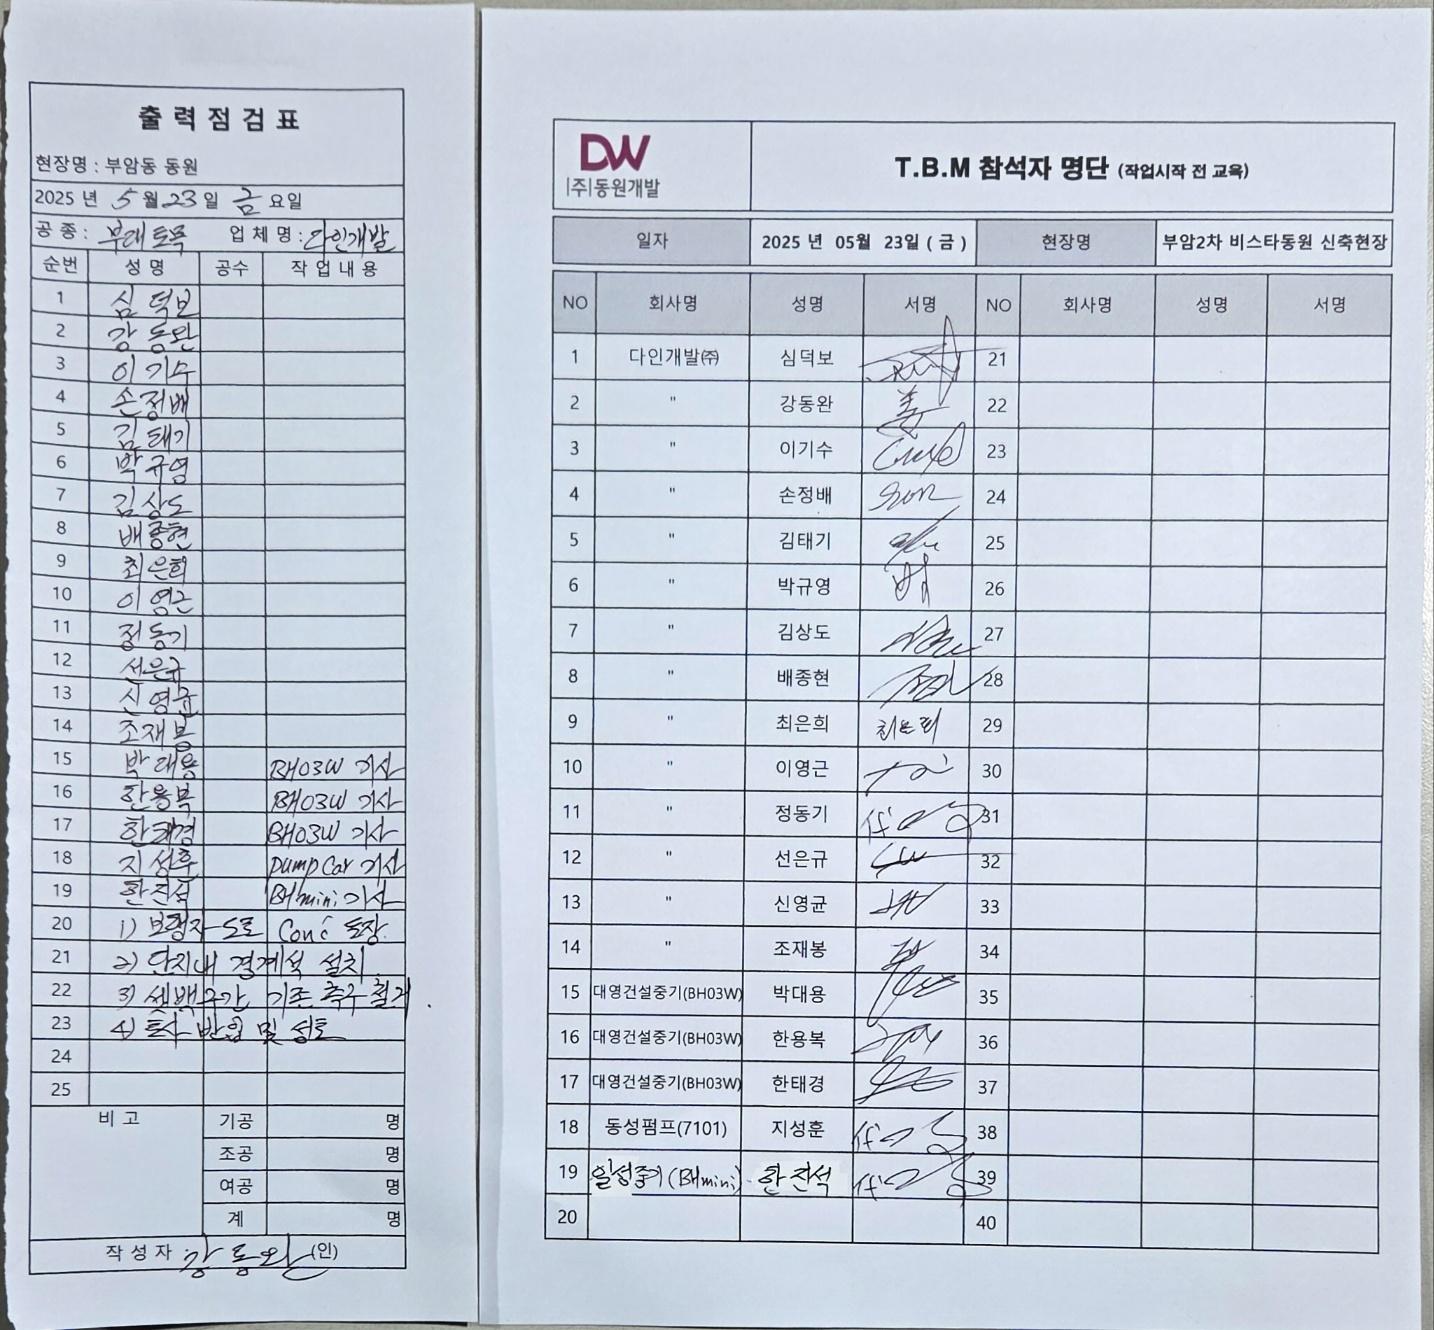 출력점검표
현장명 : 부암동 동원
2025 년 5 월 23 일 금 요일
공 종 : 부대토목 업 체 명 : 다인개발
순번 성 명 공수 작 업 내 용
1 심덕보
2 강동완
3 이기수
4 손정배
5 김태기
6 박규영
7 김상도
8 배종현
9 최은희
10 이영근
11 정동기
12 선은규
13 신영균
14 조재봉
15 박대용 BH03W 기사
16 한용복 BH03W 기사
17 한태경 BH03W 기사
18 지성훈 pump Car 기사
19 한진석 BHmini 기사
20 1) 보행자 도로 Conc 포장
21 2) 단지내 경계석 설치
22 3) 셋백구간 기존 측구 철거
23 4) 토사 반입 및 성토
24
25
비 고 기공 명
조공 명
여공 명
계 명
작 성 자 : 강동완 (인)
DW
(주)동원개발
T.B.M 참석자 명단 (작업시작 전 교육)
일자 2025 년 05월 23일 ( 금 ) 현장명 부암2차 비스타동원 신축현장
NO 회사명 성명 서명 NO 회사명 성명 서명
1 다인개발㈜ 심덕보 21
2 " 강동완 22
3 " 이기수 23
4 " 손정배 son 24
5 " 김태기 25
6 " 박규영 26
7 " 김상도 27
8 " 배종현 28
9 " 최은희 최은희 29
10 " 이영근 30
11 " 정동기 31
12 " 선은규 32
13 " 신영균 33
14 " 조재봉 34
15 대영건설중기(BH03W) 박대용 35
16 대영건설중기(BH03W) 한용복 36
17 대영건설중기(BH03W) 한태경 37
18 동성펌프(7101) 지성훈 38
19 일성중기(BHmini) 한진석 39
20 40